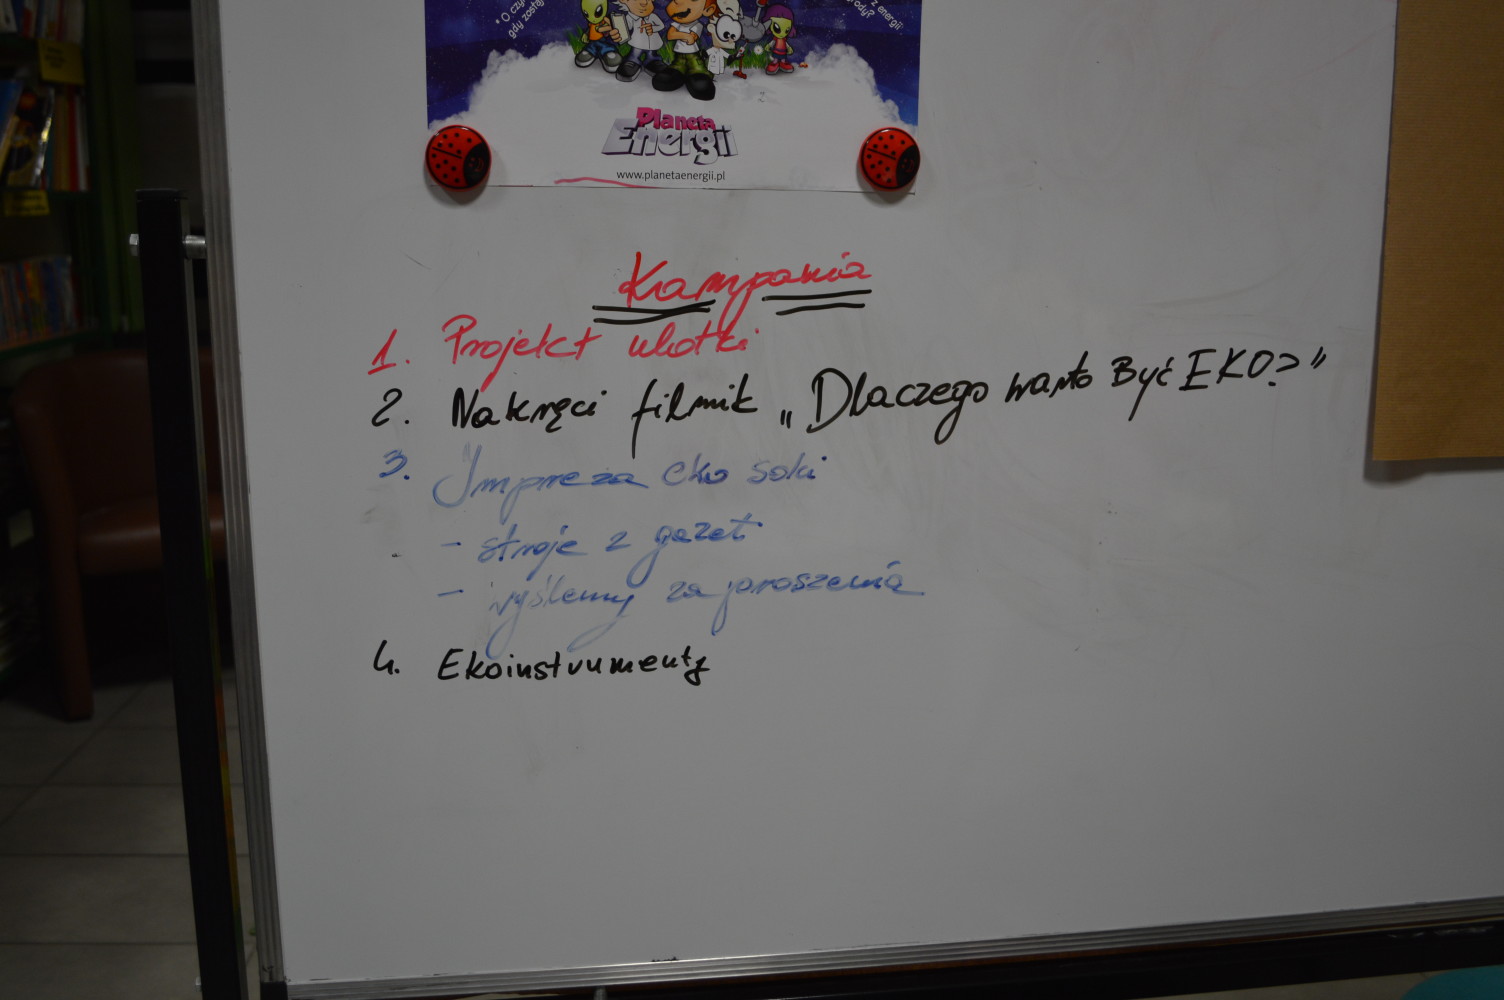 * O czy
gdy zostaj
z energii
rody?
Planeta
Energii
www.planetaenergii.pl
Kampania
1. Projekt ulotki
2. Nakręci filmik „Dlaczego warto Być EKO?”
3. Impreza eko soki
- stroje z gazet
- wyślemy zaproszenia
4. Ekoinstrumenty